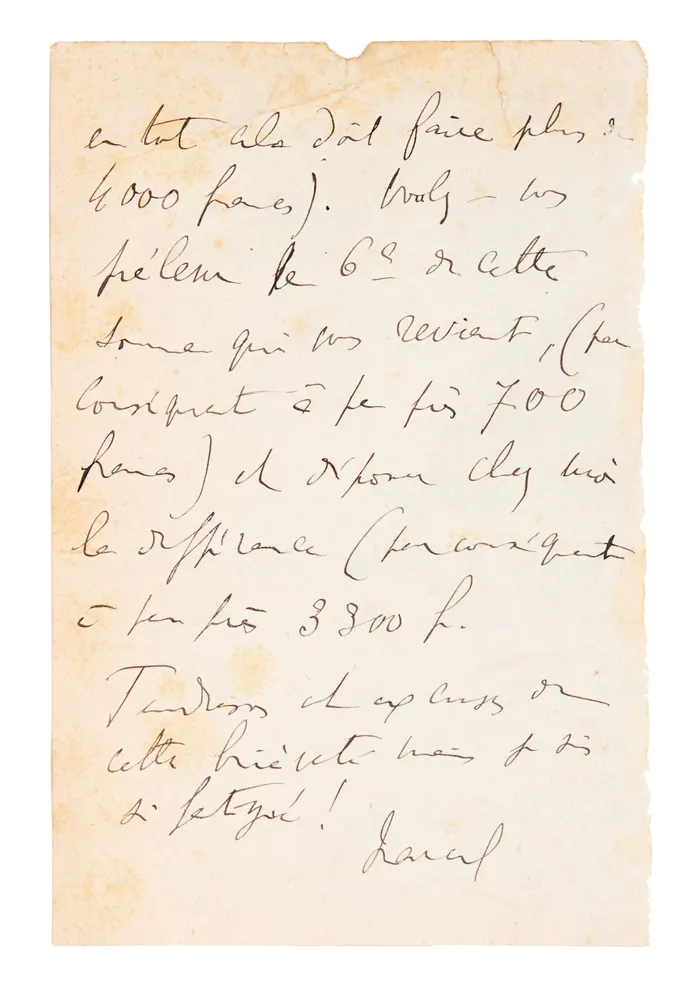 en tot cela doit faire plus de
4000 francs). Voulez-vous
prélever le 6e de cette
somme qui vous revient, (par
conséquent à peu près 700
francs) et déposer chez moi
la différence (par conséquent
à peu près 3300 f.
Tendresses et excuses de
cette brièveté mais je suis
si fatigué!
Marcel